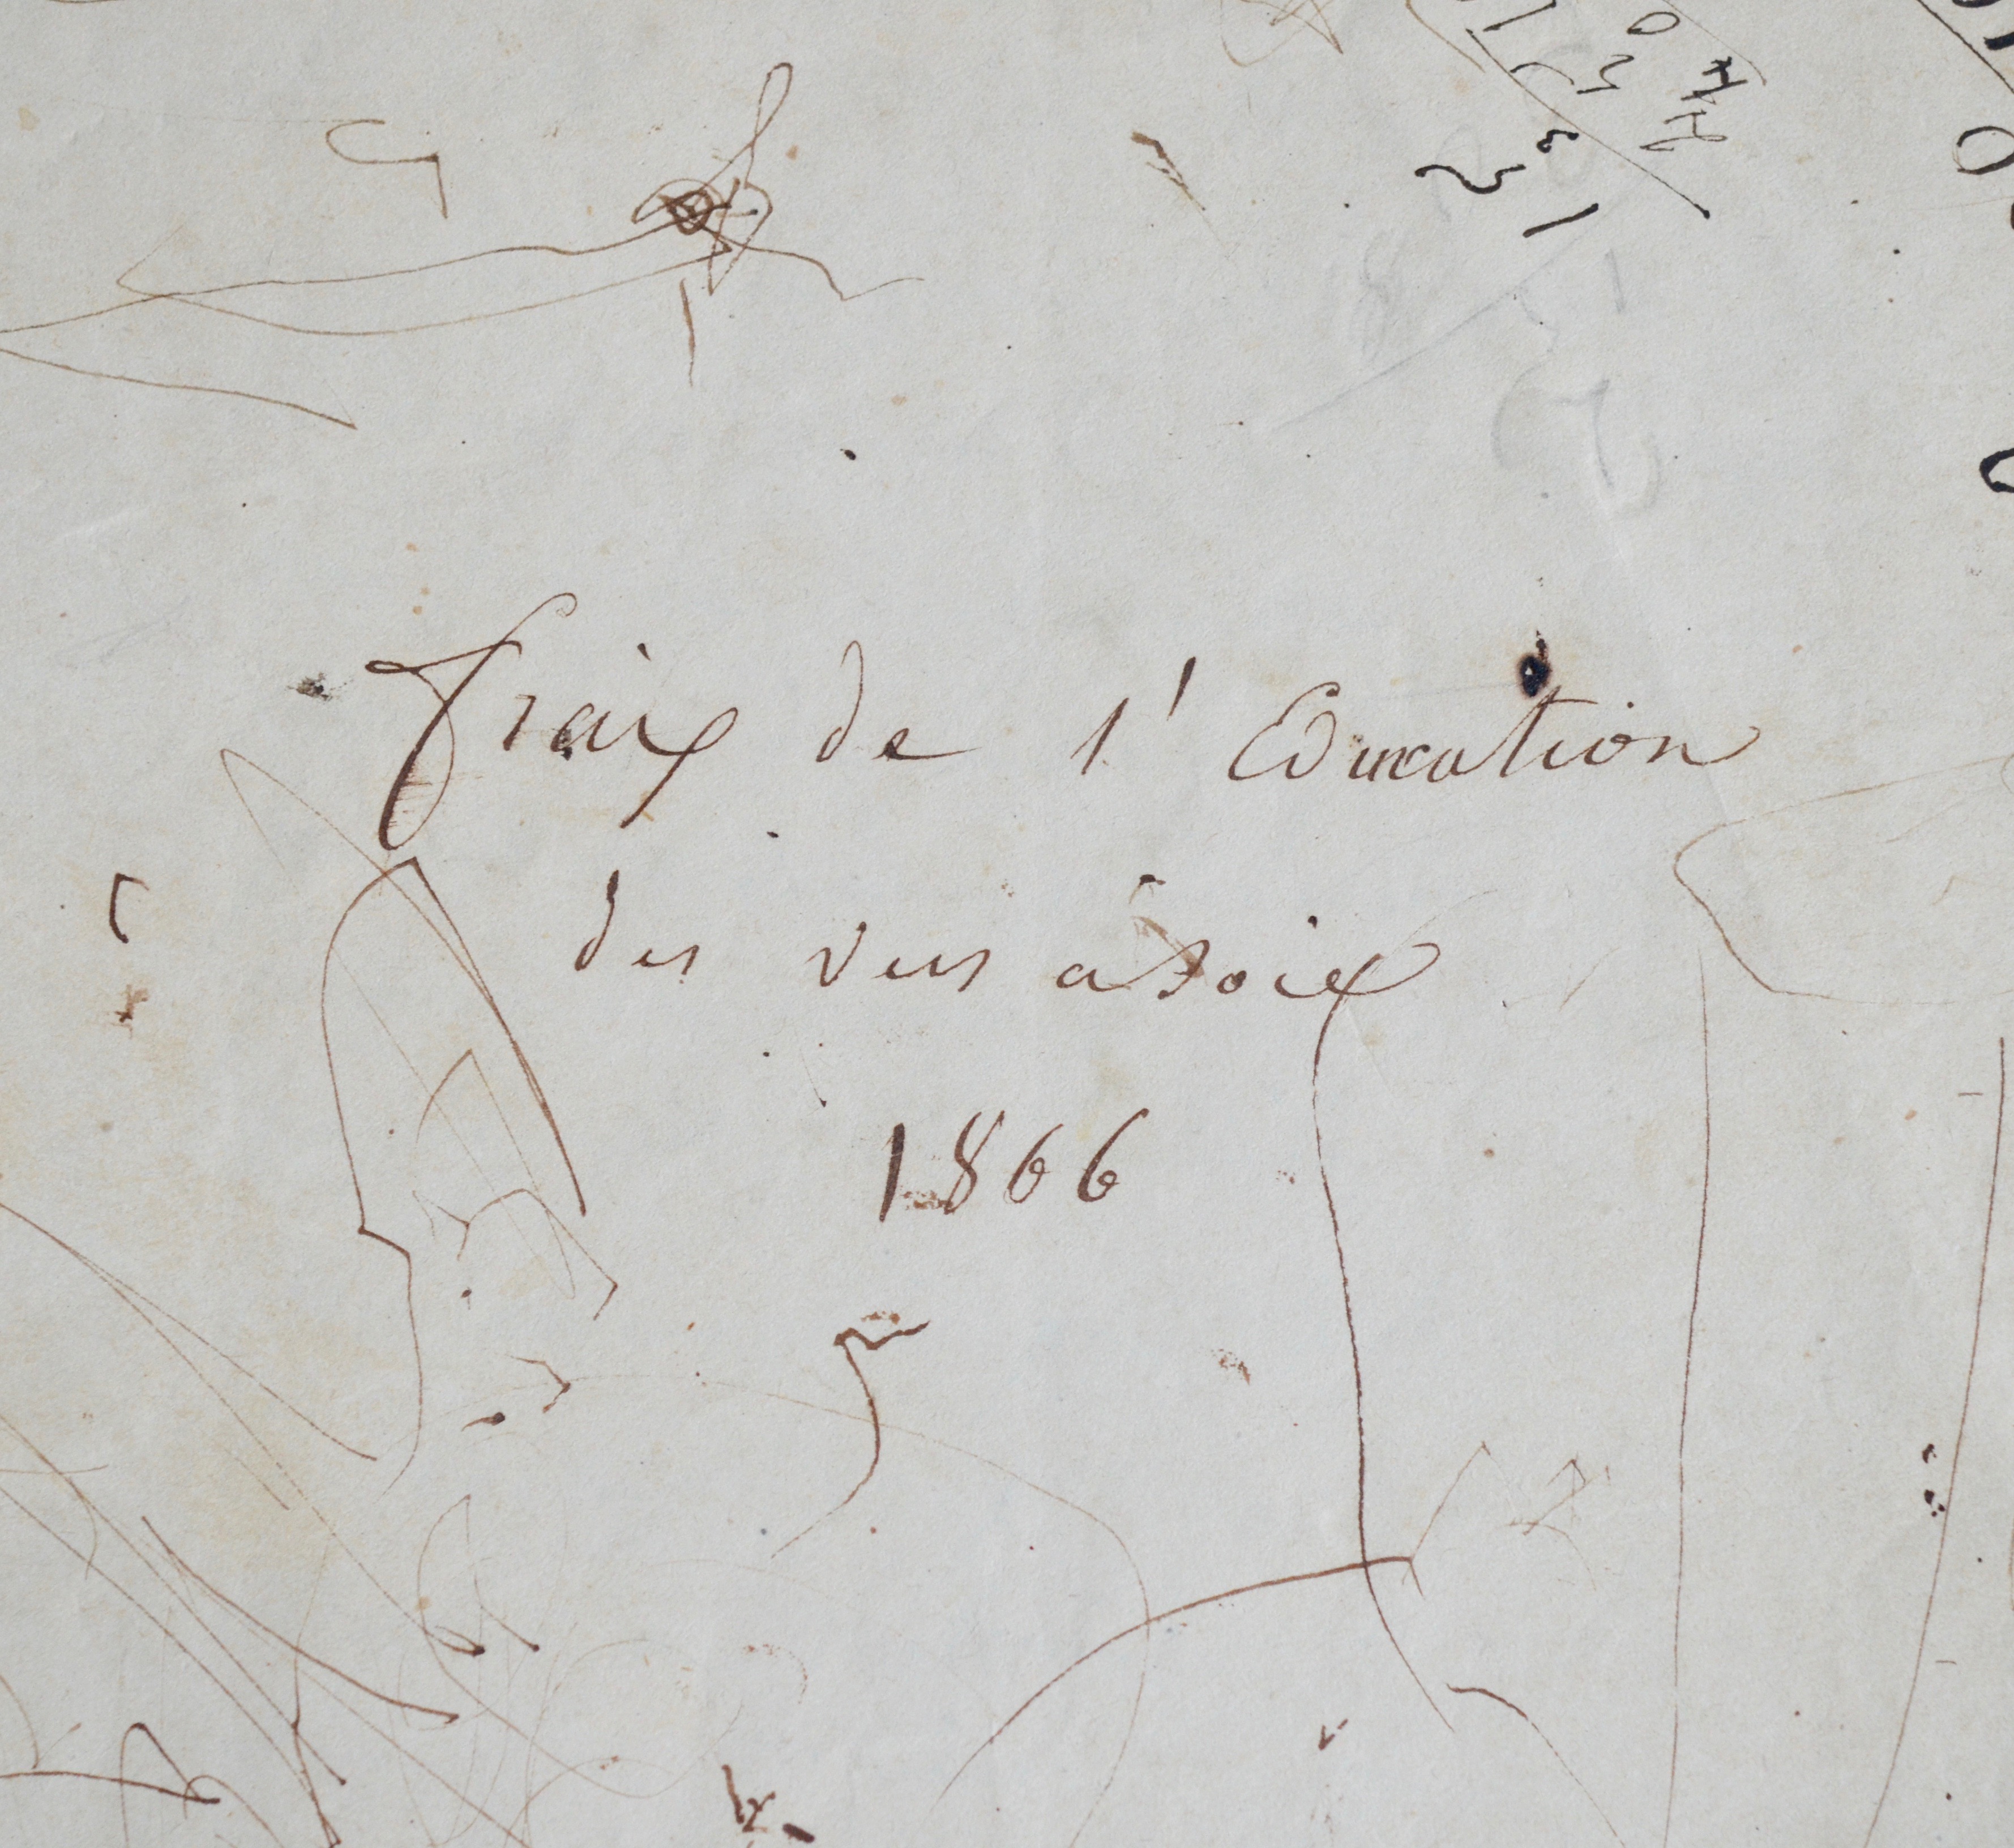 fraix de l'Education
des vers a Soie
1866